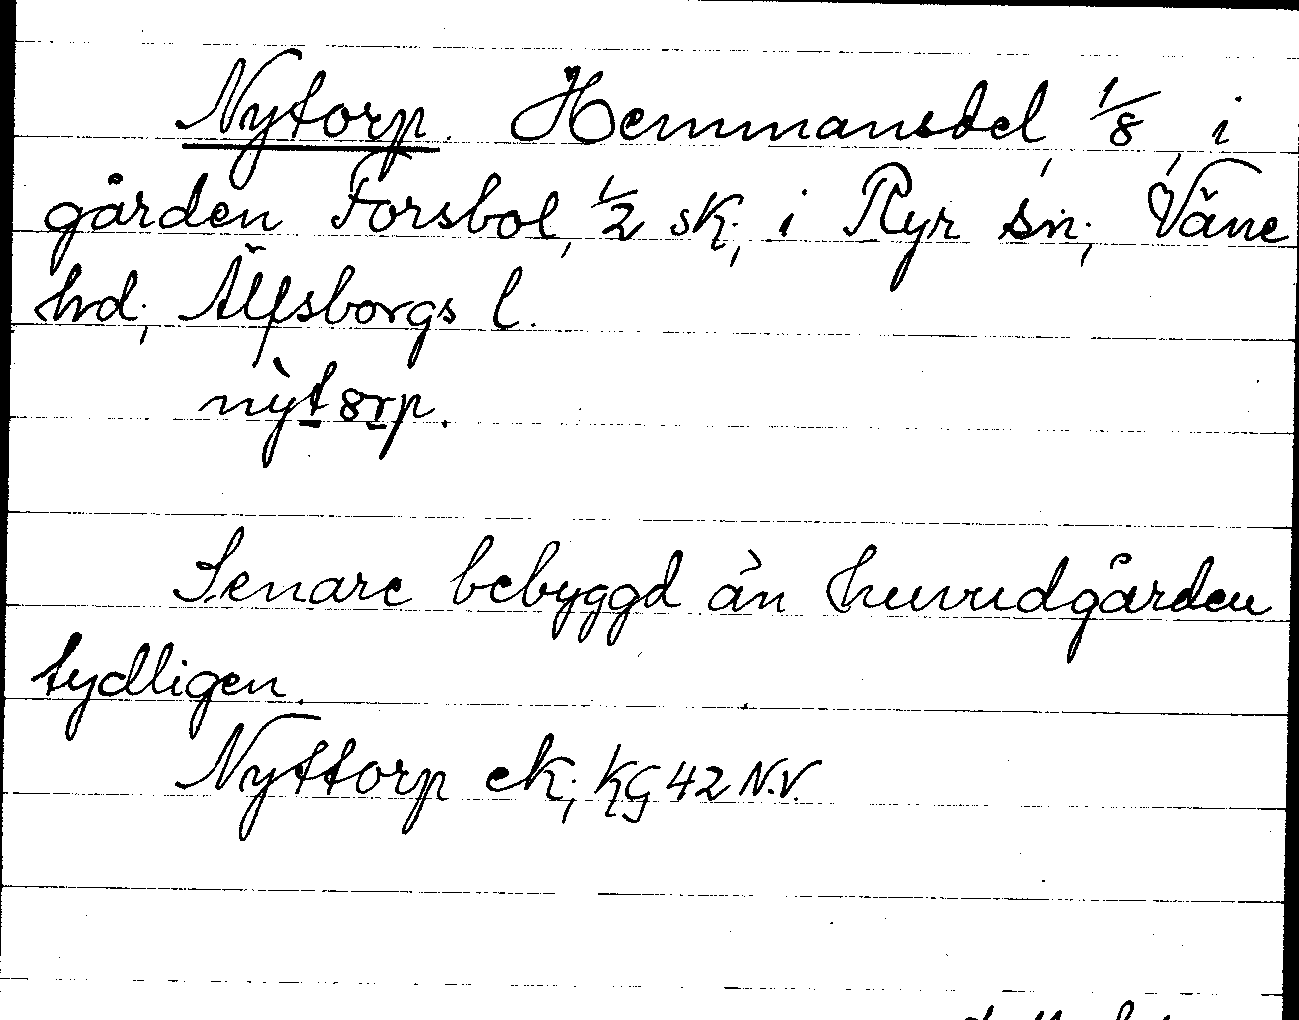 Nytorp. Hemmansdel, 1/8, i
gården Forsbol, 1/2 sk., i Ryr sn., Väne
hrd., Älfsborgs l.
nỳt8rp.
Senare bebyggd än huvudgården
tydligen.
Nyttorp ek., KG 42 N.V.